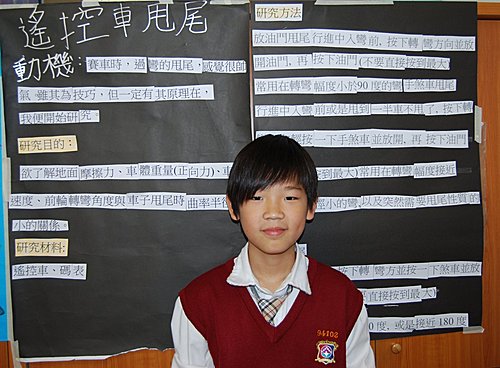 遙控車甩尾
動機：賽車時，過彎的甩尾，感覺很帥
氣 雖其為技巧，但一定有其原理在，
我便開始研究。
研究目的：
欲了解地面摩擦力、車體重量(正向力)、
速度、前輪轉彎角度與車子甩尾時曲率半
小的關係。
研究材料：
遙控車、碼表
研究方法
放油門甩尾行進中入彎前，按下轉彎方向並放
開油門，再按下油門(不要直接按到最大)
常用在轉彎幅度小於90度的彎 手煞車甩尾
行進中入彎前或是甩到一半車不甩了，按下轉
按一下手煞車並放開，再按油門
按到最大)常用在轉彎幅度接近
徑小的彎，以及突然需要甩尾性質的
按下轉彎方並按一下煞車並放
直接按到最大
0度，或是接近180度
94102